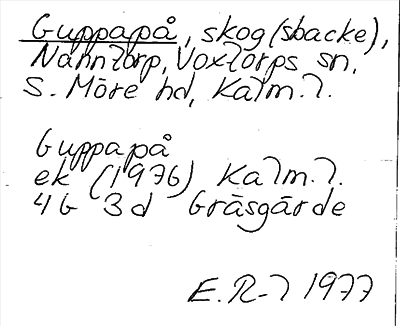 Guppapå, skog(sbacke),
Nanntorp, Voxtorps sn,
S. Möre hd, Kalm. l.
Guppapå
ek (1976) Kalm. l.
4G 3d Gräsgärde
E. R-l 1977